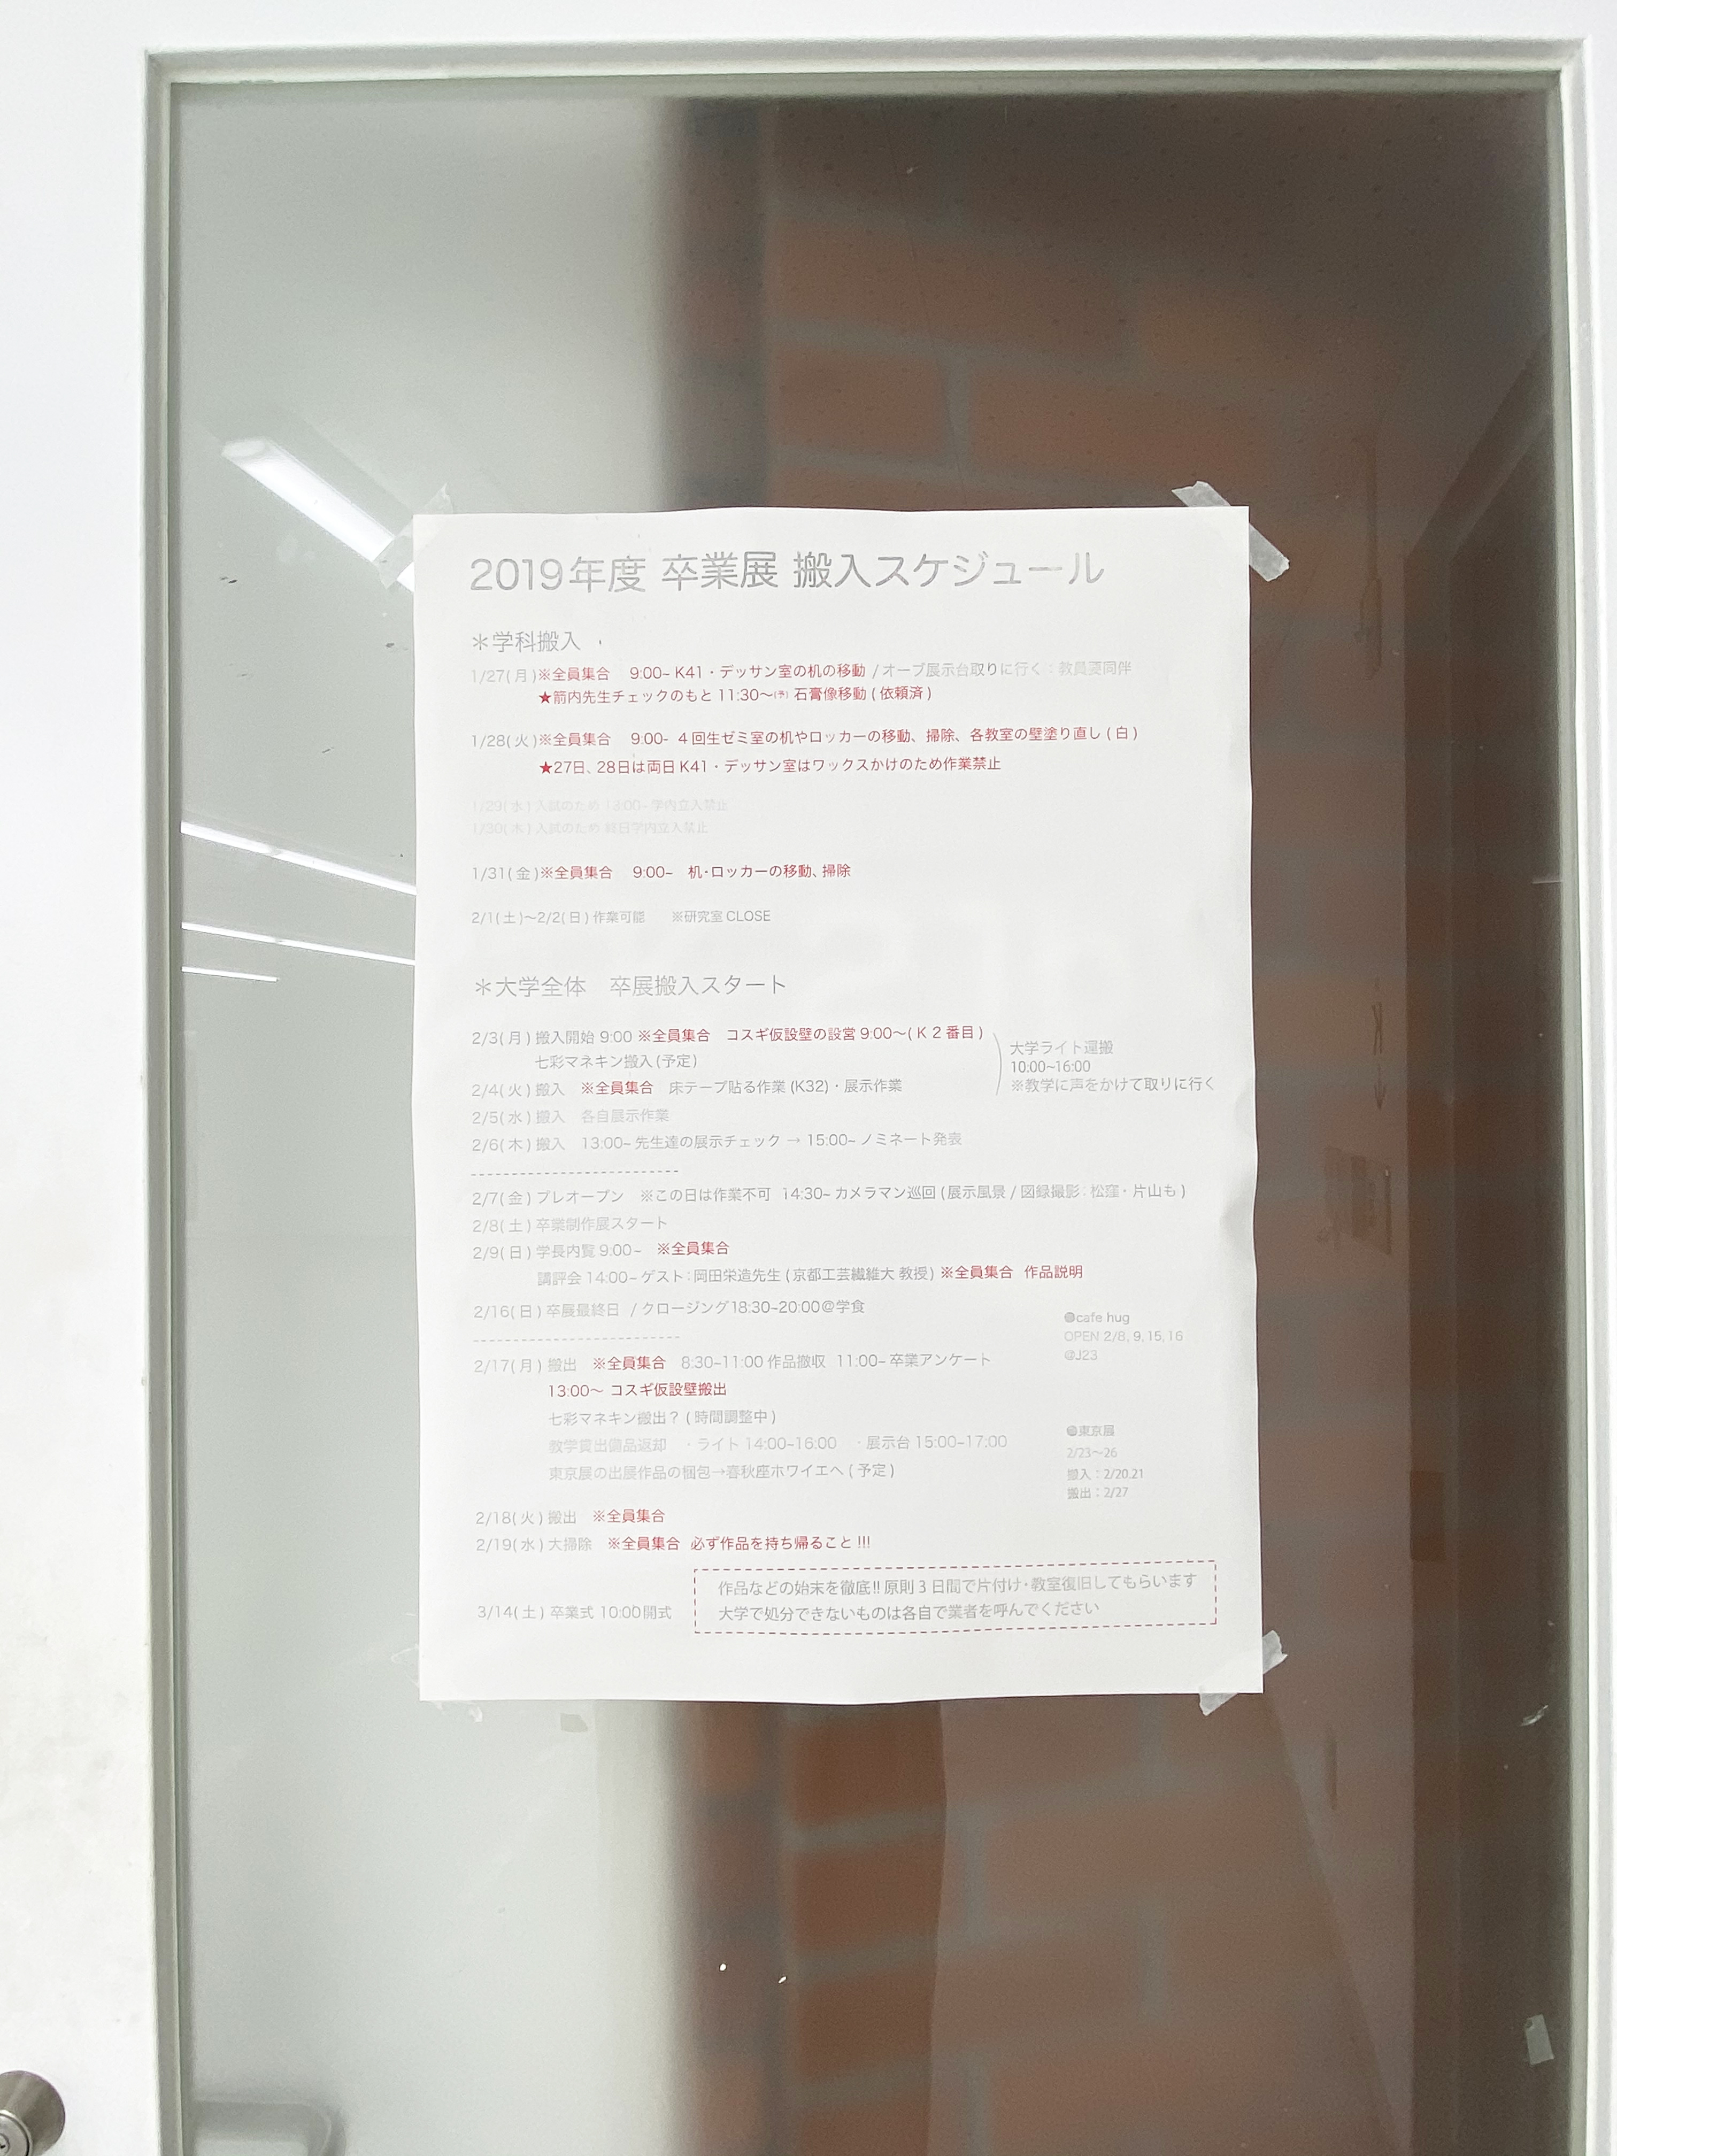 2019年度 卒業展 搬入スケジュール
＊学科搬入
1/27(月)※全員集合 9:00~ K41・デッサン室の机の移動 /オープ展示台取りに行く：教員要同伴
★箭内先生チェックのもと 11:30〜(予) 石膏像移動 (依頼済)
1/28(火)※全員集合 9:00- 4回生ゼミ室の机やロッカーの移動、掃除、各教室の壁塗り直し (白)
★27日、28日は両日 K41・デッサン室はワックスかけのため作業禁止
1/29(水)入試のため 13:00-学内立入禁止
1/30(木)入試のため 終日学内立入禁止
1/31(金)※全員集合 9:00~ 机・ロッカーの移動、掃除
2/1(土)〜2/2(日)作業可能 ※研究室 CLOSE
＊大学全体 卒展搬入スタート
2/3(月) 搬入開始 9:00 ※全員集合 コスギ仮設壁の設営 9:00〜( K 2 番目)
七彩マネキン搬入(予定)
2/4(火) 搬入 ※全員集合 床テープ貼る作業 (K32)・展示作業
大学ライト運搬
10:00~16:00
※教学に声をかけて取りに行く
2/5(水) 搬入 各自展示作業
2/6(木) 搬入 13:00~ 先生達の展示チェック → 15:00~ ノミネート発表
--------------------------
2/7(金) プレオープン ※この日は作業不可 14:30~ カメラマン巡回 (展示風景 / 図録撮影：松窪・片山も)
2/8(土) 卒業制作展スタート
2/9(日) 学長内覧 9:00~ ※全員集合
講評会 14:00~ ゲスト：岡田栄造先生 (京都工芸繊維大 教授) ※全員集合 作品説明
2/16(日) 卒展最終日 / クロージング 18:30~20:00@学食
--------------------------
●cafe hug
OPEN 2/8, 9, 15, 16
@J23
2/17(月) 搬出 ※全員集合 8:30~11:00 作品撤収 11:00~ 卒業アンケート
13:00〜 コスギ仮設壁搬出
七彩マネキン搬出？(時間調整中)
教学貸出備品返却 ・ライト 14:00~16:00 ・展示台 15:00~17:00
東京展の出展作品の梱包→春秋座ホワイエへ (予定)
●東京展
2/23〜26
搬入：2/20.21
搬出：2/27
2/18(火) 搬出 ※全員集合
2/19(水) 大掃除 ※全員集合 必ず作品を持ち帰ること !!!
作品などの始末を徹底!! 原則 3 日間で片付け・教室復旧してもらいます
大学で処分できないものは各自で業者を呼んでください
3/14(土) 卒業式 10:00開式